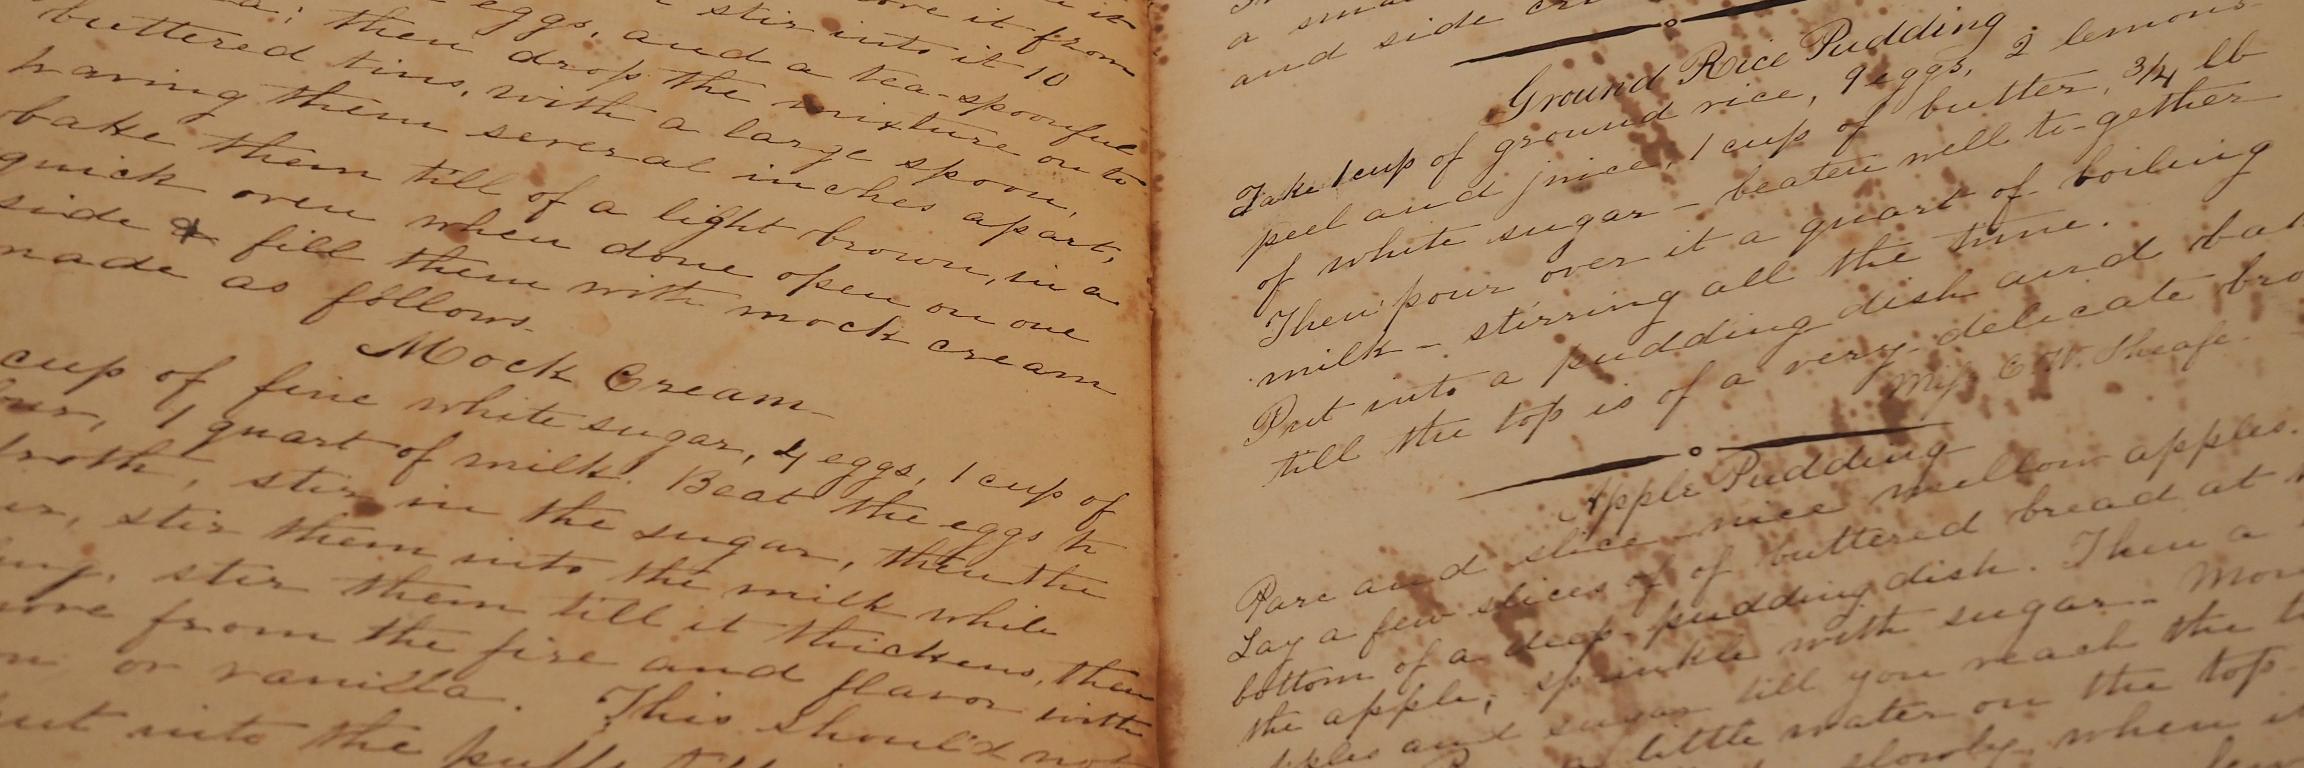 it from
eggs, stir into it 10
then and a tea-spoonful
buttered tins, drop the mixture on to
having them with a large spoon,
bake them several inches apart,
quick till of a light brown, in a
side & oven when done open on one
made fill them with mock cream
as follows.
Mock Cream
cup of fine white sugar, 4 eggs, 1 cup of
1 quart of milk. Beat the eggs to
froth, stir in the sugar, then the
stir them into the milk while
stir them till it thickens, then
from the fire and flavor with
or vanilla. This should not
into the
a
and side
Ground Rice Pudding
Take 1 cup of ground rice, 9 eggs, 2 lemons
peel and juice, 1 cup of butter, 3/4 lb
of white sugar - beaten well to-gether
Then pour over it a quart of boiling
milk - stirring all the time.
Put into a pudding dish and
till the top is of a very delicate
Miss E. W. Sheafe.
Apple Pudding
Pare and slice nice mellow apples.
Lay a few slices of of buttered bread at
bottom of a deep pudding dish. Then a
the apple, sprinkle with sugar - More
and sugar till you reach the
little water on the top
slowly when